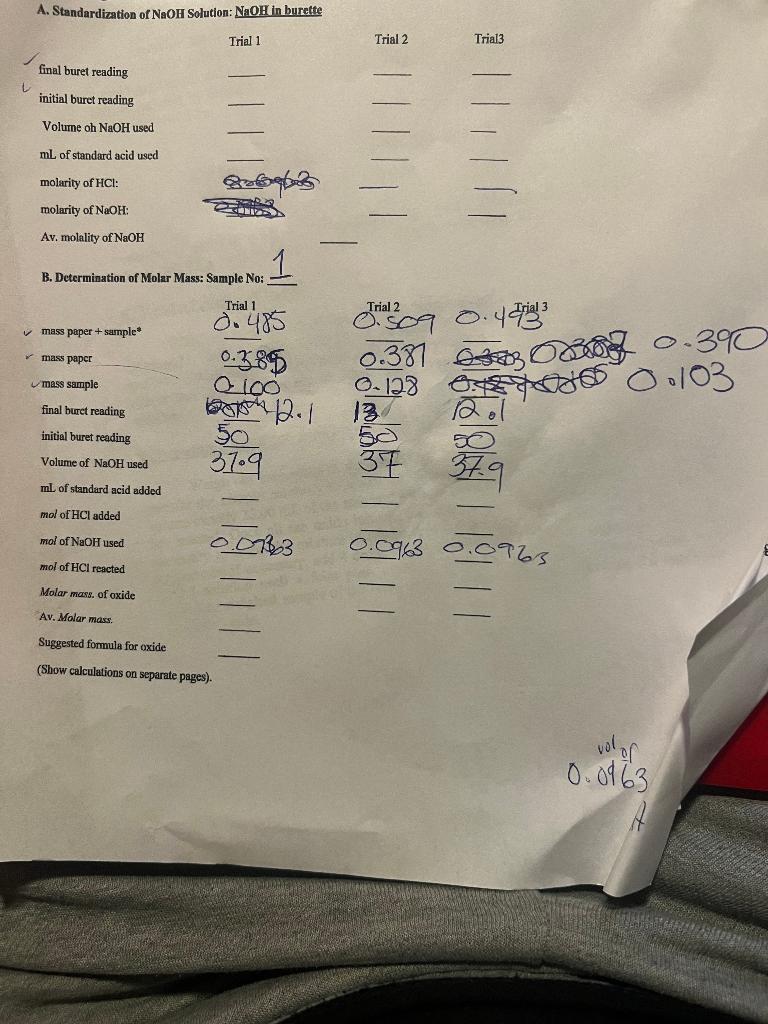 A. Standardization of NaOH Solution: NaOH in burette
Trial 1 Trial 2 Trial3
final buret reading
initial buret reading
Volume oh NaOH used
mL of standard acid used
molarity of HCl:
molarity of NaOH:
Av. molality of NaOH
B. Determination of Molar Mass: Sample No: 1
Trial 1 Trial 2 Trial 3
mass paper + sample* 0.485 0.509 0.493
mass paper 0.385 0.381 0.390
mass sample 0.100 0.128 0.103
final buret reading 12.1 13 12.1
initial buret reading 50 50 50
Volume of NaOH used 37.9 37 37.9
mL of standard acid added
mol of HCl added
mol of NaOH used 0.0963 0.0963
mol of HCl reacted
Molar mass. of oxide
Av. Molar mass.
Suggested formula for oxide
(Show calculations on separate pages).
vol of
0.0963
A